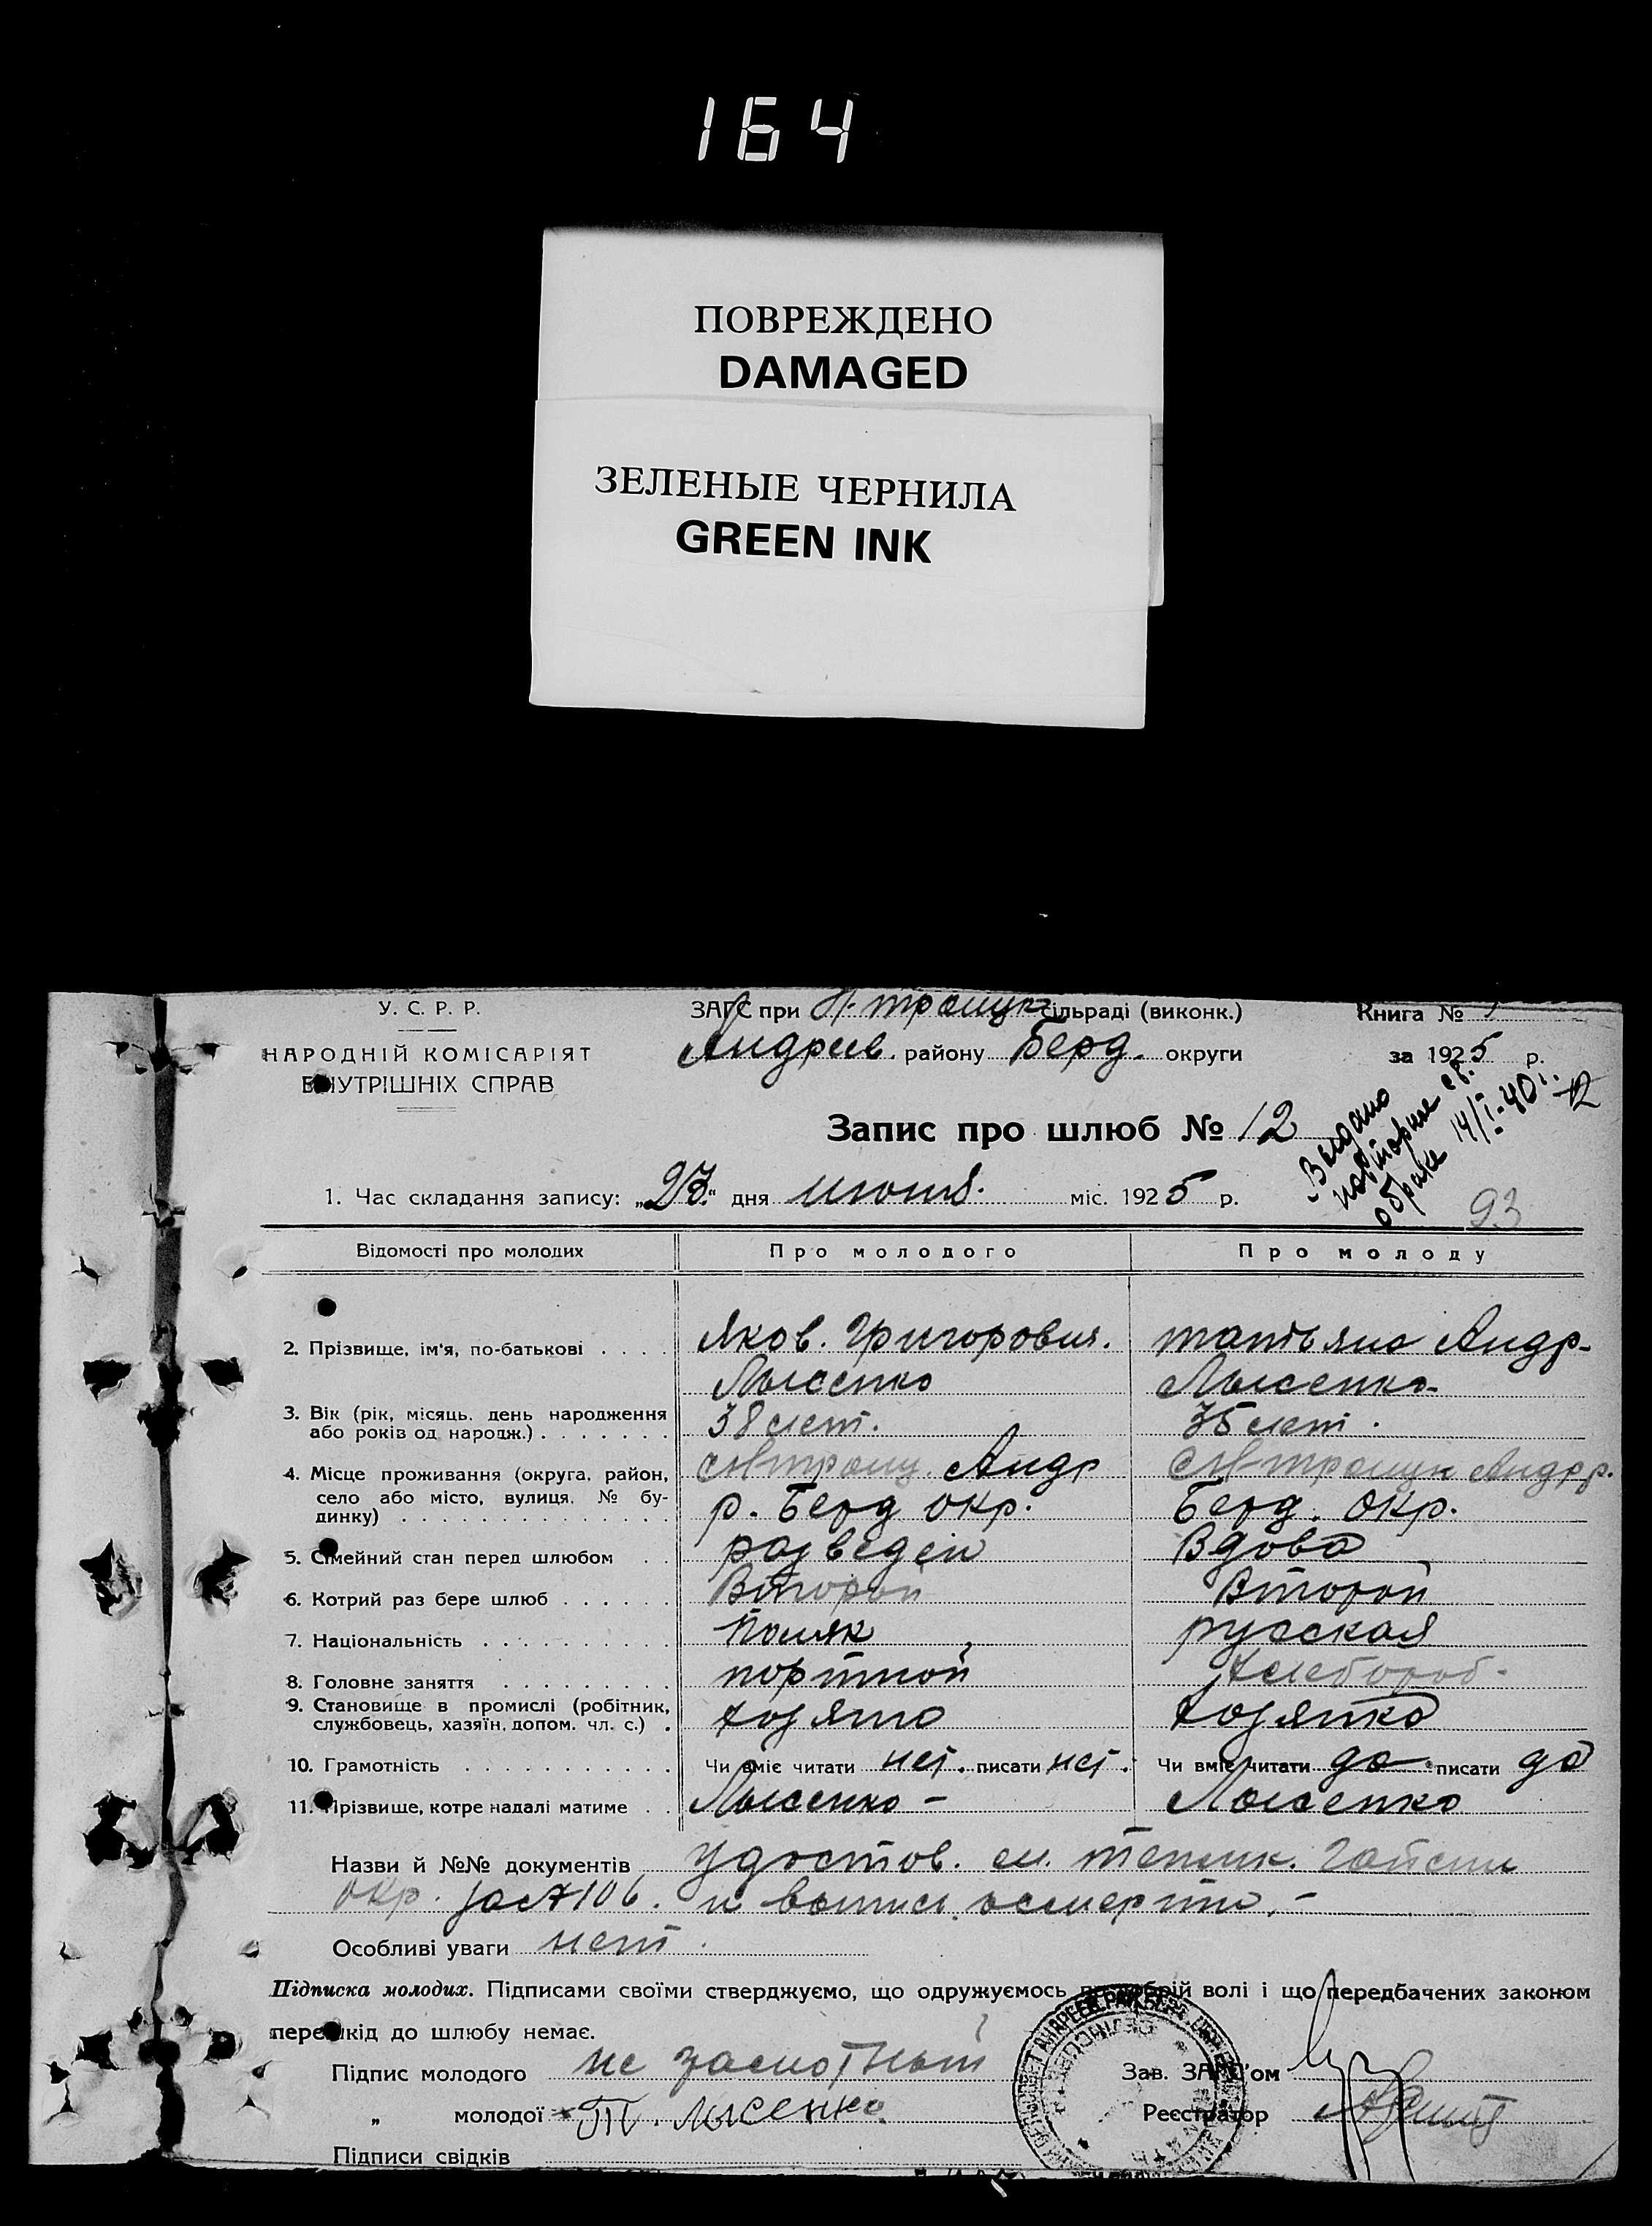 164
ПОВРЕЖДЕНО
DAMAGED
ЗЕЛЕНЫЕ ЧЕРНИЛА
GREEN INK
У. С. Р. Р.
НАРОДНІЙ КОМІСАРІЯТ
ВНУТРІШНІХ СПРАВ
ЗАГС при Н. троицк сільраді (виконк.)
Андреев. району Берд. округи
Книга № 1
за 1925 р.
Запис про шлюб № 12
Выдано
повторное св.
о браке 14/I-40 г.
12
1. Час складання запису: „23" дня июня. міс. 1925 р.
93
Відомості про молодих Про молодого Про молоду
2. Прізвище, ім'я, по-батькові . . . . Яков. Григорович. татьяна Андр-
Лысенко Лысенко-
3. Вік (рік, місяць, день народження
або років од народж.) . . . . . . . 38 лет. 35 лет.
4. Місце проживання (округа, район,
село або місто, вулиця, № бу-
динку) . . . . . . . . . . . . . . Андр
р. Берд окр. Берд. окр.
5. Сімейний стан перед шлюбом . . разведен Вдова
6. Котрий раз бере шлюб . . . . . . Второй Второй
7. Національність . . . . . . . . . . поляк русская
8. Головне заняття . . . . . . . . . портной хлебороб-
9. Становище в промислі (робітник,
службовець, хазяїн, допом. чл. с.) . хозяин хозяйка
10. Грамотність . . . . . . . . . . . Чи вміє читати нет. писати нет. Чи вміє читати да писати да
11. Прізвище, котре надалі матиме . . Лысенко - Лысенко
Назви й №№ документів удостов.
окр. и выпись о смерти. -
Особливі уваги нет.
Підписка молодих. Підписами своїми стверджуємо, що одружуємось по добрій волі і що передбачених законом
перешкід до шлюбу немає.
Підпис молодого не
Зав. ЗАГС'ом
„ молодої Т. Лысенко
Реєстратор
Підписи свідків